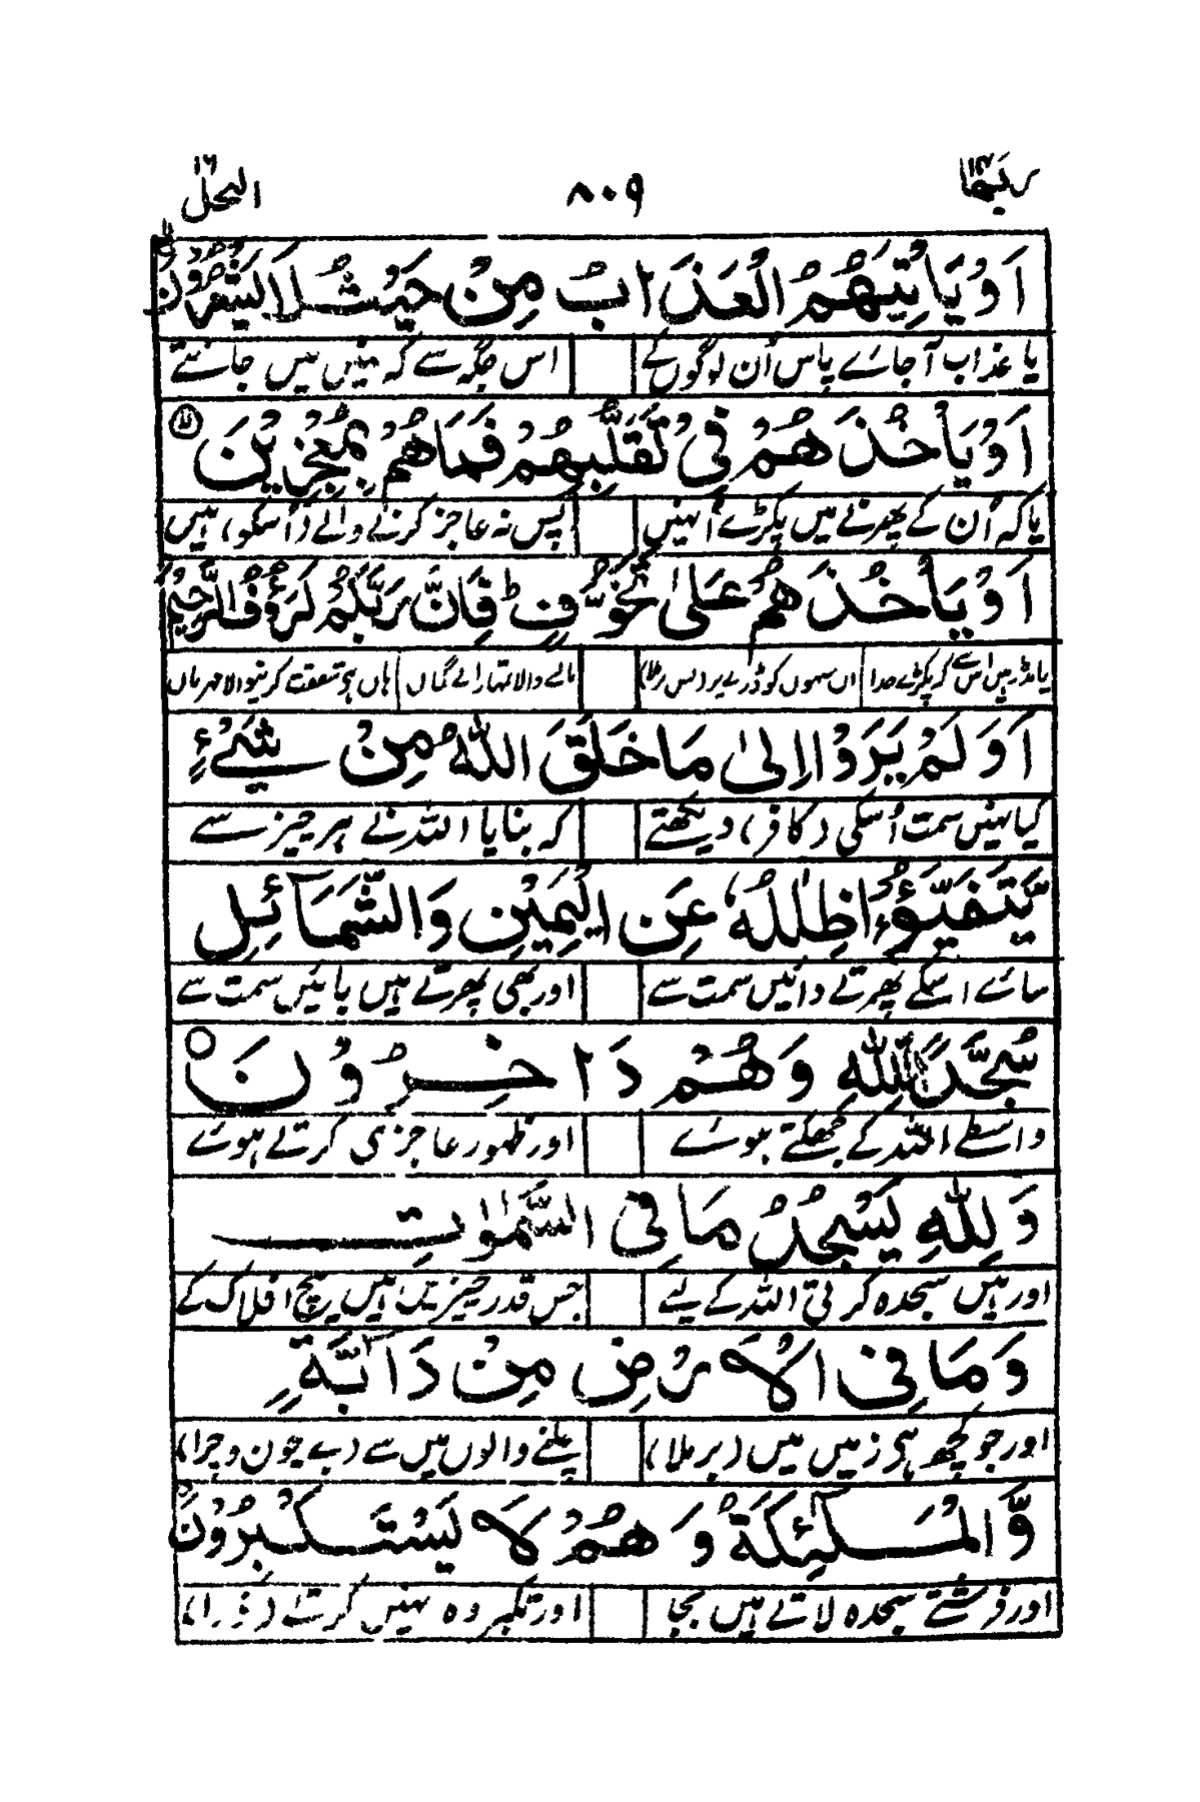 ربما ۱۴ ۸۰۹ النحل ۱۶
اَوْ يَاْتِيَهُمُ الْعَذَابُ مِنْ حَيْثُ لَا يَشْعُرُوْنَ
یا عذاب آجائے پاس اُن لوگوں کے اس جگہ سے کہ نہیں ہیں جانتے
اَوْ يَاْخُذَهُمْ فِيْ تَقَلُّبِهِمْ فَمَا هُمْ بِمُعْجِزِيْنَ
یا کہ اُن کے پھرنے میں پکڑے اُنہیں پس نہ عاجز کرنے والے (اُسکو) ہیں
اَوْ يَاْخُذَهُمْ عَلٰى تَخَوُّفٍ ؕ فَاِنَّ رَبَّكُمْ لَرَءُوْفٌ الرَّحِيْمٌ
یا ڈر میں اس کے پکڑے خدا ان سہوں کو ڈرے پر والا تمہارا بے گماں ہاں ہے شفقت کرنیوالا مہرباں
اَوَ لَمْ يَرَوْا اِلٰى مَا خَلَقَ اللّٰهُ مِنْ شَيْءٍ
کیا نہیں سمت اُسکی (کافر) دیکھتے کہ بنایا اللہ نے ہر چیز سے
يَّتَفَيَّؤُا ظِلٰلُهٗ عَنِ الْيَمِيْنِ وَالشَّمَآئِلِ
سائے اسکے پھرتے دائیں سمت سے اور بھی پھرتے ہیں بائیں سمت سے
سُجَّدًا لِّلّٰهِ وَهُمْ دَاخِرُوْنَ
واسطے اللہ کے جھکتے ہوئے اور ظہور عاجزی کرتے ہوئے
وَلِلّٰهِ يَسْجُدُ مَا فِي السَّمٰوٰتِ
اور ہیں سجدہ کرتی اللہ کے لیے جس قدر چیزیں ہیں بیچ افلاک کے
وَمَا فِي الْاَرْضِ مِنْ دَآبَّةٍ
اور جو کچھ ہے زمیں میں (برملا) چلنے والوں میں سے (بے چون و چرا)
وَّالْمَلٰٓئِكَةُ وَهُمْ لَا يَسْتَكْبِرُوْنَ
اور فرشتے سجدہ لاتے ہیں بجا اور تکبر وہ نہیں کرتے (ذرا)